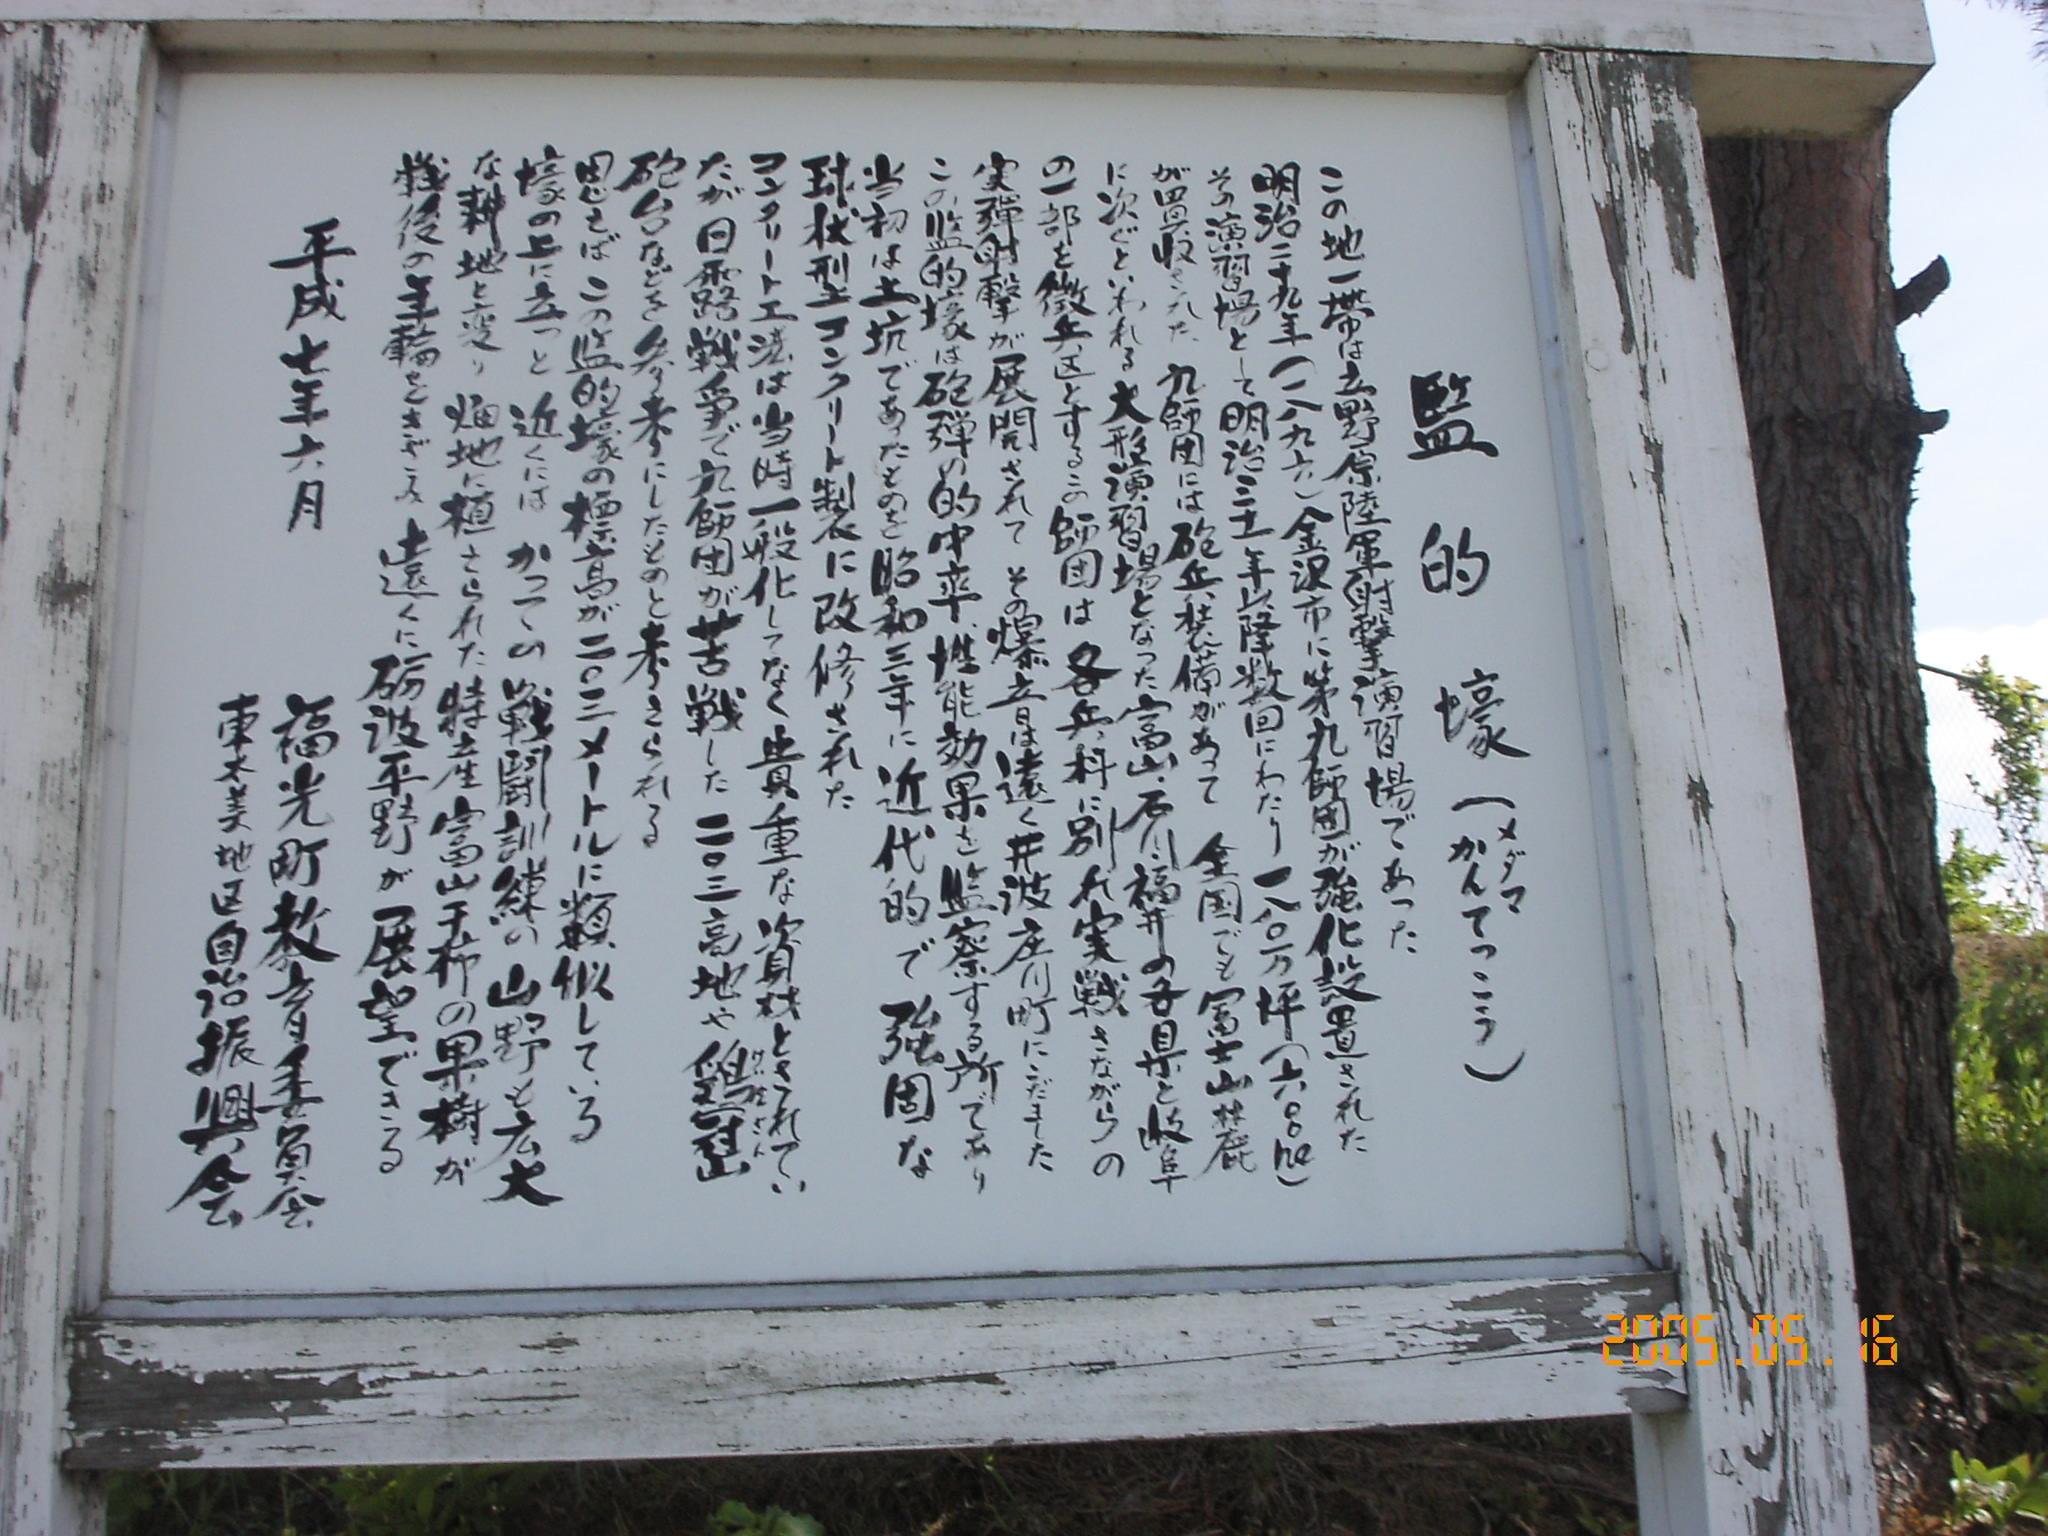 監的壕(かんてっこう)
メダマ
この地一帯は立野原陸軍射撃演習場であった
明治二十九年(一八九六)金沢市に第九師団が強化設置された
その演習場として明治三十一年以降数回にわたり一八〇万坪(六〇〇ha)
が買収された 九師団には砲兵装備があって 全国でも富士山林麓
に次ぐといわれる大形演習場となった富山、石川、福井の各県と岐阜
の一部を徴兵区とするこの師団は 各兵科に別れ実戦さながらの
実弾射撃が展開されて その爆音は遠く井波庄川町にこだました
この監的壕は砲弾の的中率、性能効果を監察する所であり
当初は土坑であったものを昭和三年に近代的で強固な
球状型コンクリート製に改修された
コンクリート工法は当時一般化してなく貴重な資材とされてい
たが日露戦争で九師団が苦戦した二〇三高地や鶏冠山
けいかんさん
砲台などを参考にしたものと考えられる
思えばこの監的壕の標高が二〇三メートルに類似している
壕の上に立つと 近くには かつての戦闘訓練の山野も広大
な耕地と変り 畑地に植えられた特産富山干柿の果樹が
戦後の年輪をきざみ 遠くに砺波平野が展望できる
平成七年六月
福光町教育委員会
東太美地区自治振興会
2005.05.16